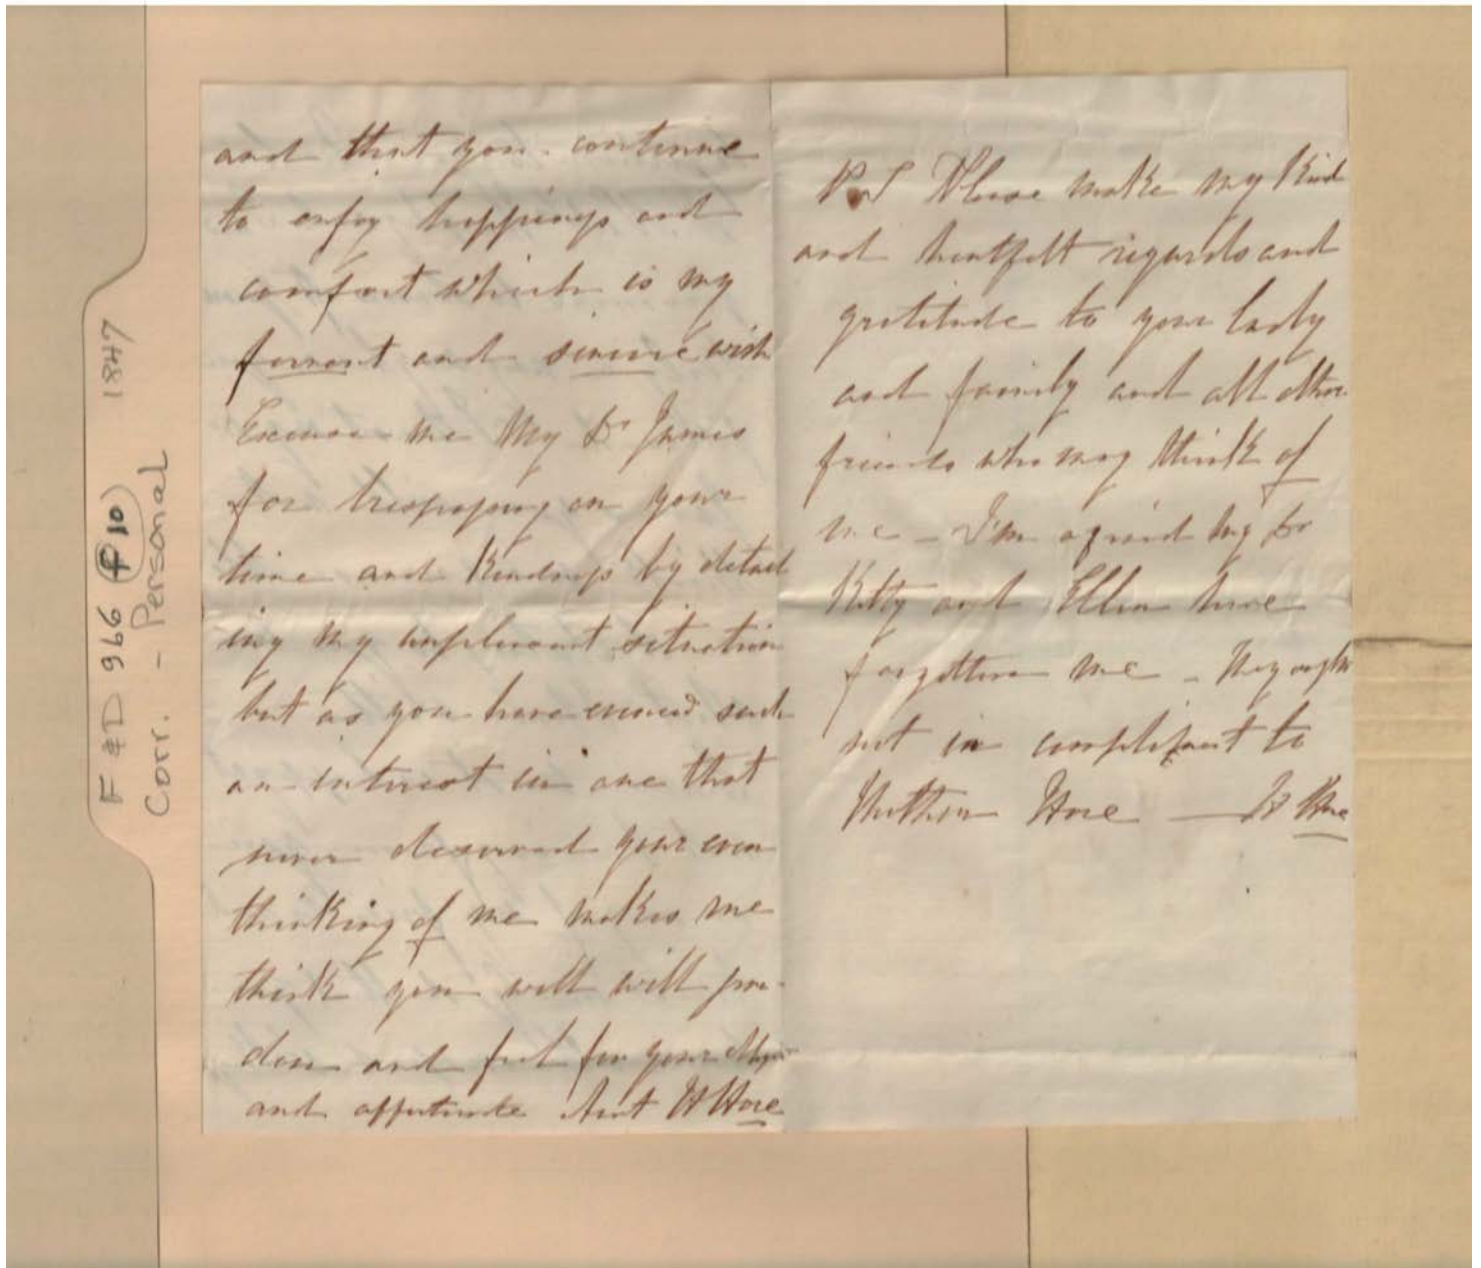 F & D 966 f10 1847
Corr. - Personal
and that you continue
to enjoy happiness and
comfort which is my
fervant and sincere wish
Excuse me My Dr James
for trespassing on your
time and Kindness by detail
ing my unpleasant situation
but as you have evinced such
an interest in one that
never deserved your even
thinking of me makes me
think you will will par-
don and feel for your
and affectionate Aunt H Hore
P.S Please make my Kind
and heartfelt regards and
gratitude to your lady
and family and all other
friends who may think of
me - I'm afraid my Dr
Kitty and Ellen have
forgotten me - they ought
not in compliment to
Hore — H Hore